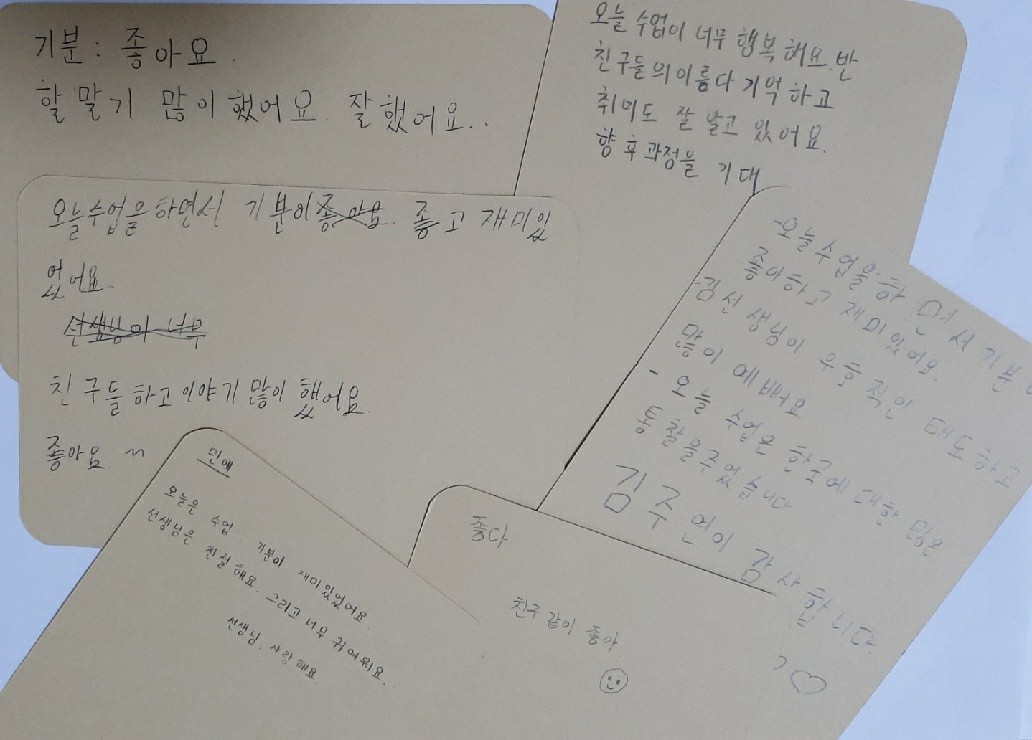 기분 : 좋아요.
할 말기 많이 했어요. 잘했어요..
오늘 수업이 너무 행복해요. 반
친구들의 이름다 기억하고
취미도 잘 알고 있어요.
향후 과정을 기대
오늘수업을하면서 기분이좋아요. 좋고 재미있
었어요.
선생님이 너무
친구들하고 이야기 많이 했어요.
좋아요. ~
-오늘 수업을 하면서 기분이
좋아하고 재미있어요.
김선생님이 우호적인 태도하고
많이 예뻐요
- 오늘 수업은 한국에 대한 많은
통찰을주었습니다
김주연이 감사합니다.
♡
민애
오늘은 수업 기분이 재미있었어요.
선생님은 친절해요. 그리고 너무 귀여워요.
선생님, 사랑해요.
좋다
친구 같이 좋아